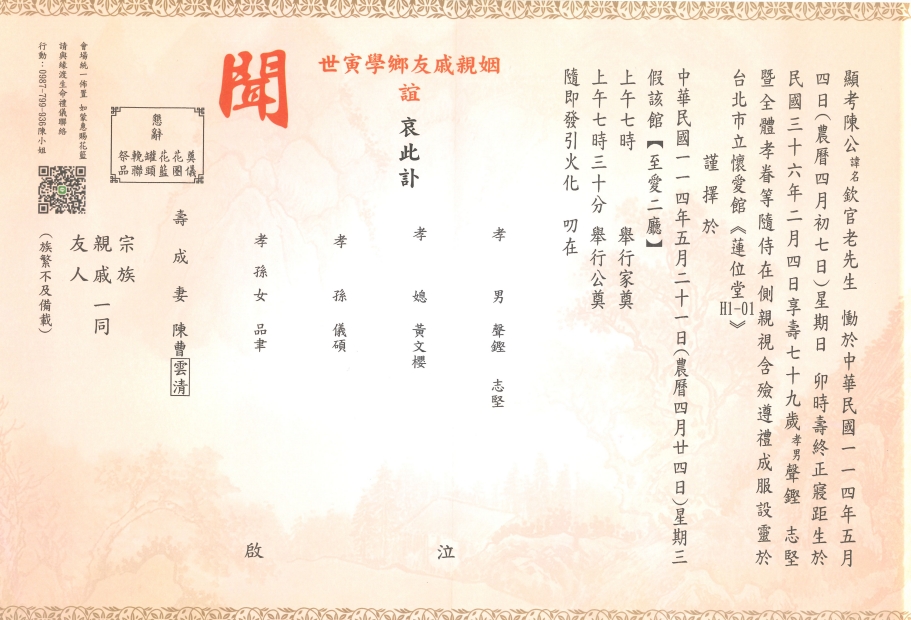 顯考陳公諱名欽官老先生 慟於中華民國一一四年五月
四日(農曆四月初七日)星期日 卯時壽終正寢距生於
民國三十六年二月四日享壽七十九歲孝男聲鏗 志堅
暨全體孝眷等隨侍在側親視含殮遵禮成服設靈於
台北市立懷愛館《蓮位堂H1-01》
謹擇於
中華民國一一四年五月二十一日(農曆四月廿四日)星期三
假該館【至愛二廳】
上午七時 舉行家奠
上午七時三十分 舉行公奠
隨即發引火化 叨在
姻親戚友鄉學寅世
誼
哀此訃
聞
孝男 聲鏗 志堅
孝媳 黃文櫻
孝孫 儀碩
孝孫女 品聿
壽成妻 陳曹雲清
泣
啟
宗族
親戚一同
友人
(族繁不及備載)
懇辭
奠儀
花圈
花籃
罐頭
輓聯
祭品
會場統一佈置 如蒙惠賜花籃
請與緣渡生命禮儀聯絡
行動:0987-799-936陳小姐